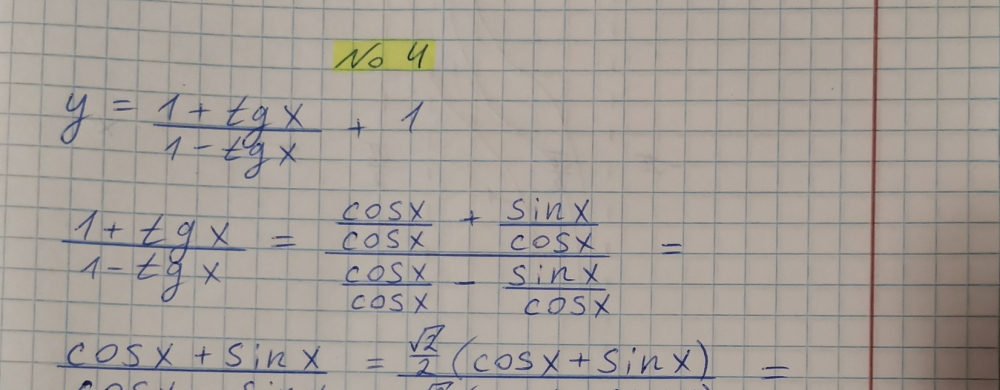 No 4
y = (1 + tg x)/(1 - tg x) + 1
(1 + tg x)/(1 - tg x) = (cosx/cosx + sinx/cosx)/(cosx/cosx - sinx/cosx) =
cosx + sinx = √2/2 (cosx + sinx) =